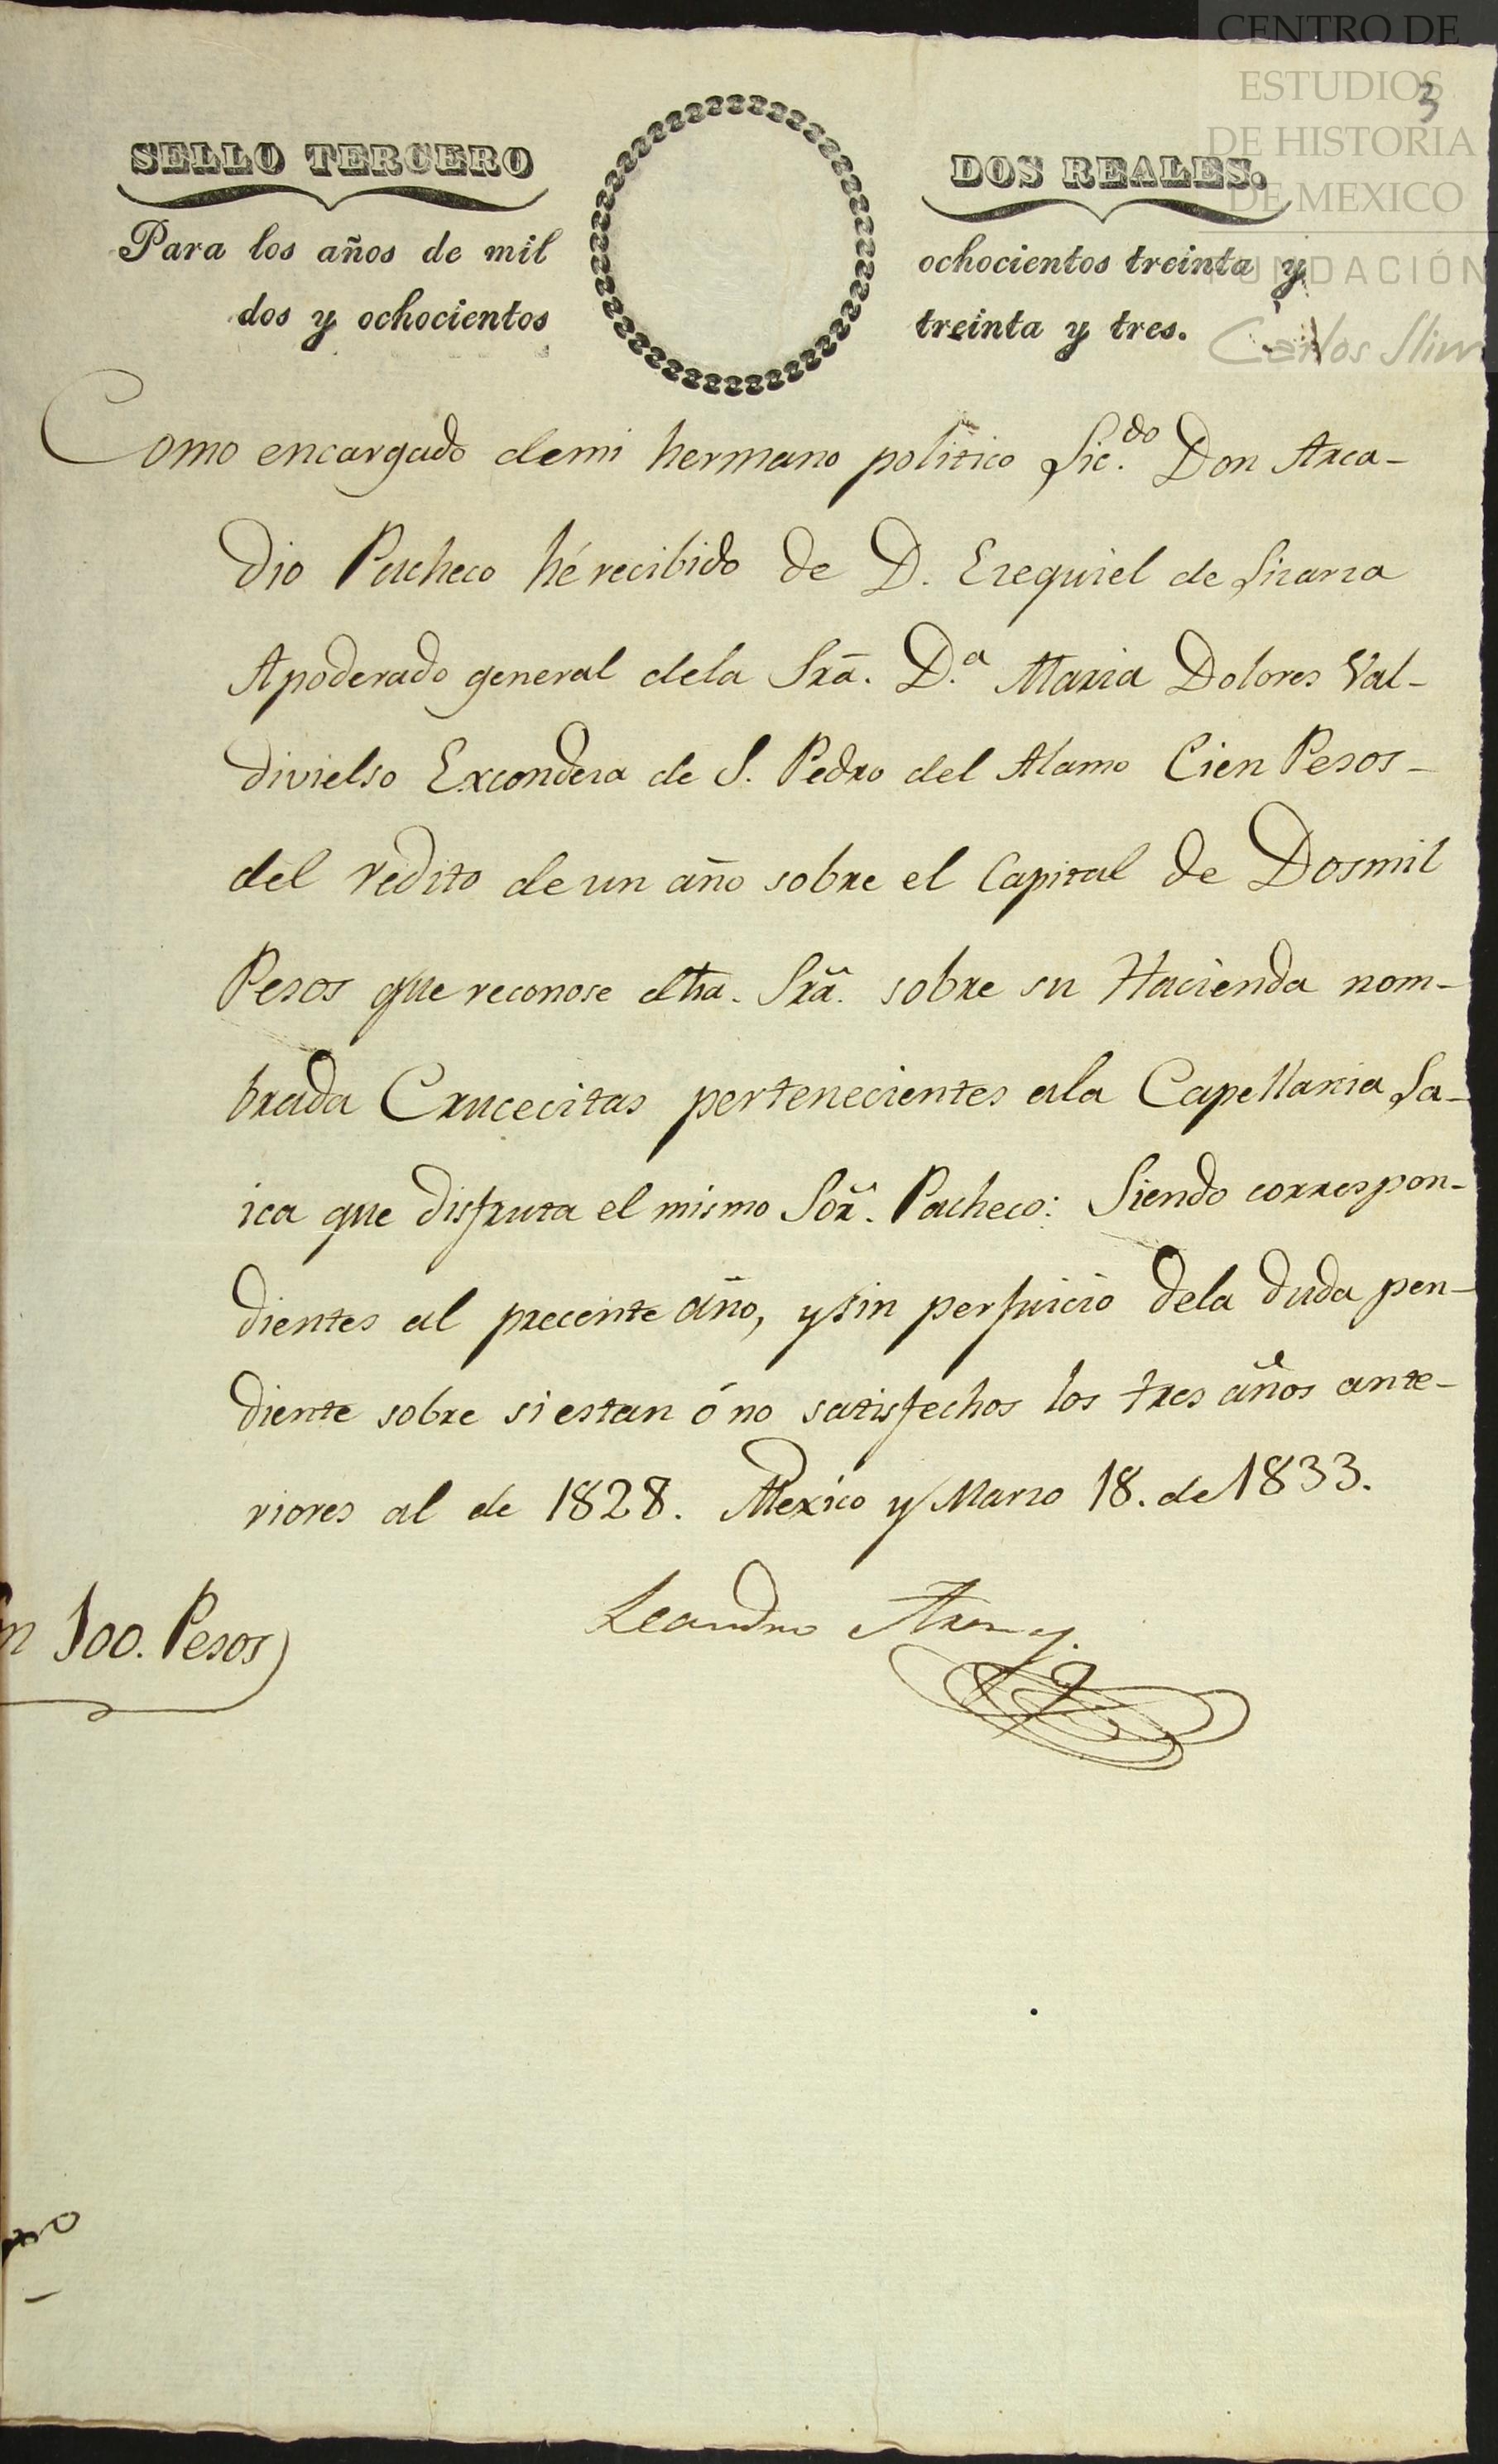 CENTRO DE
ESTUDIOS
DE HISTORIA
DE MEXICO
FUNDACIÓN
Carlos Slim
3
SELLO TERCERO
DOS REALES.
Para los años de mil
ochocientos treinta y
dos y ochocientos
treinta y tres.
Como encargado demi hermano politico Lic.do Don Arca-
dio Pacheco hé recibido de D. Ezequiel de Lizarza
Apoderado general dela Sra. D.a Maria Dolores Val-
divielso Excondeza de S. Pedro del Alamo Cien Pesos-
del redito de un año sobre el Capital de Dosmil
Pesos que reconose dha. Sra. sobre su Hacienda nom-
brada Crucecitas pertenecientes ala Capellania La-
ica que disfruta el mismo Sor. Pacheco: Siendo correspon-
dientes al precente año, y sin perjuicio dela duda pen-
diente sobre si estan ó no satisfechos los tres años ante-
riores al de 1828. Mexico y Marzo 18. de 1833.
Leandro
100. Pesos